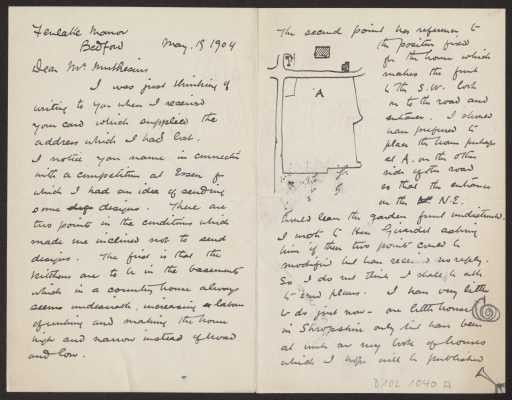 Fenlake Manor
Bedford May. 15 1904
Dear Mr. Muthesius,
I was just thinking of
writing to you when I received
your card which supplied the
address which I had lost.
I notice your name in connection
with a competition at Essen for
which I had an idea of sending
some designs. There are
two points in the conditions which
made me inclined not to send
designs. The first is that the
kitchens are to be in the basement
which in a country house always
seems undesirable, increasing labour
of running and making the house
high and narrow instead of broad
and low.
The second point has reference to
the position fixed
for the house which
makes the front
to the S.W. look
on to the road and
entrance. I should
have preferred to
place the house perhaps
at A. on the other
side of the road
so that the entrance
on the N.E.
would leave the garden front undisturbed.
I wrote to Herr asking
him if these two points could be
modified but have received no reply.
So I do not think I shall be able
to send plans. I have very little
to do just now - one little house
in Shropshire only but have been
at work on my book of houses
which I hope will be published
A
D102 1040 A